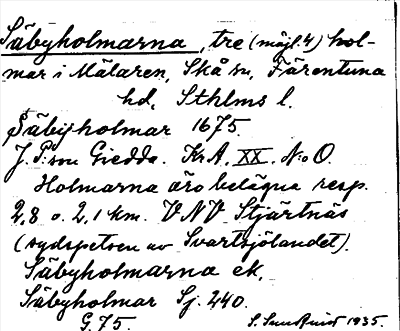 Säbyholmarna, tre (möjl. 4) hol-
mar i Mälaren, Skå sn, Färentuna
hd, Sthlms l.
Säbyholmar 1675.
J. P:son Giedda. Kr A. XX. N:o O.
Holmarna äro belägna resp.
2,8 o. 2,1 km. VNV Stjärtnäs
(sydspetsen av Svartsjölandet).
Säbyholmarna ek,
Säbyholmar Sj. 240.
G. 75. S. Sundquist 1935.